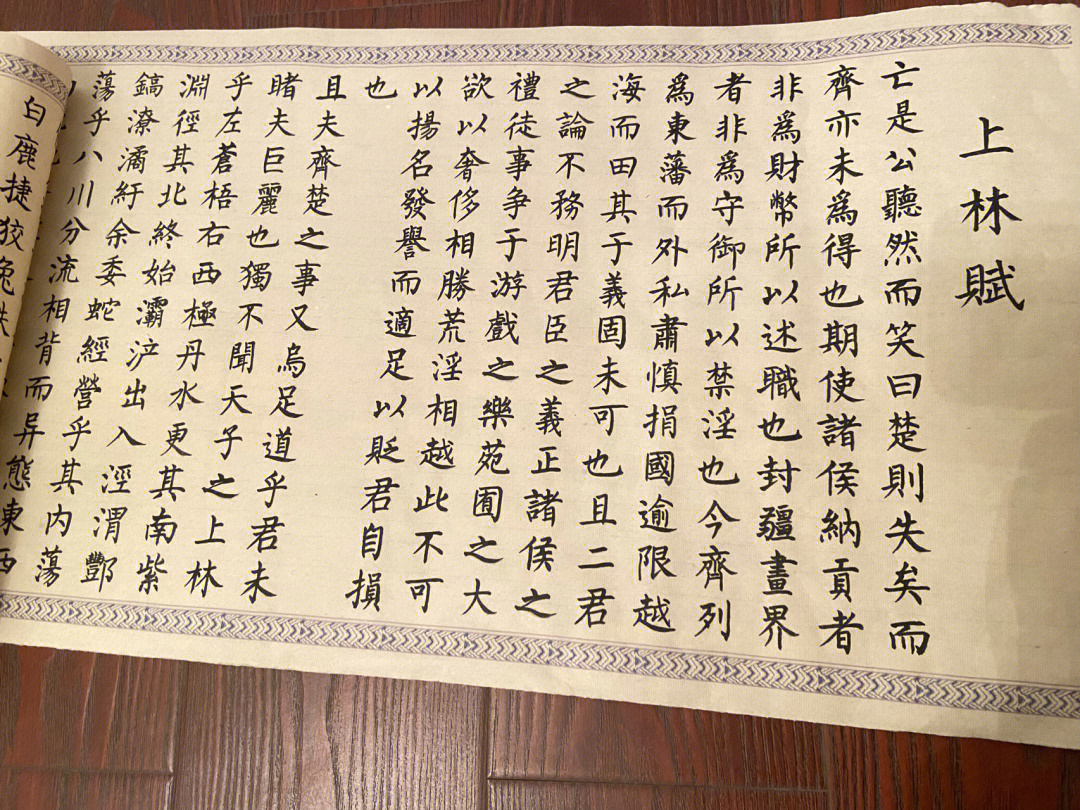 上林賦
亡是公聽然而笑曰楚則失矣而
齊亦未爲得也期使諸侯納貢者
非爲財幣所以述職也封疆畫界
者非爲守御所以禁淫也今齊列
爲東藩而外私肅慎捐國逾限越
海而田其于義固未可也且二君
之論不務明君臣之義正諸侯之
禮徒事争于游戲之樂苑囿之大
欲以奢侈相勝荒淫相越此不可
以揚名發譽而適足以貶君自損
也
且夫齊楚之事又烏足道乎君未
睹夫巨麗也獨不聞天子之上林
乎左蒼梧右西極丹水更其南紫
淵徑其北終始灞浐出入涇渭酆
鎬潦潏紆余委蛇經營乎其内蕩
蕩乎八川分流相背而异態東西
白鹿捷狡兔